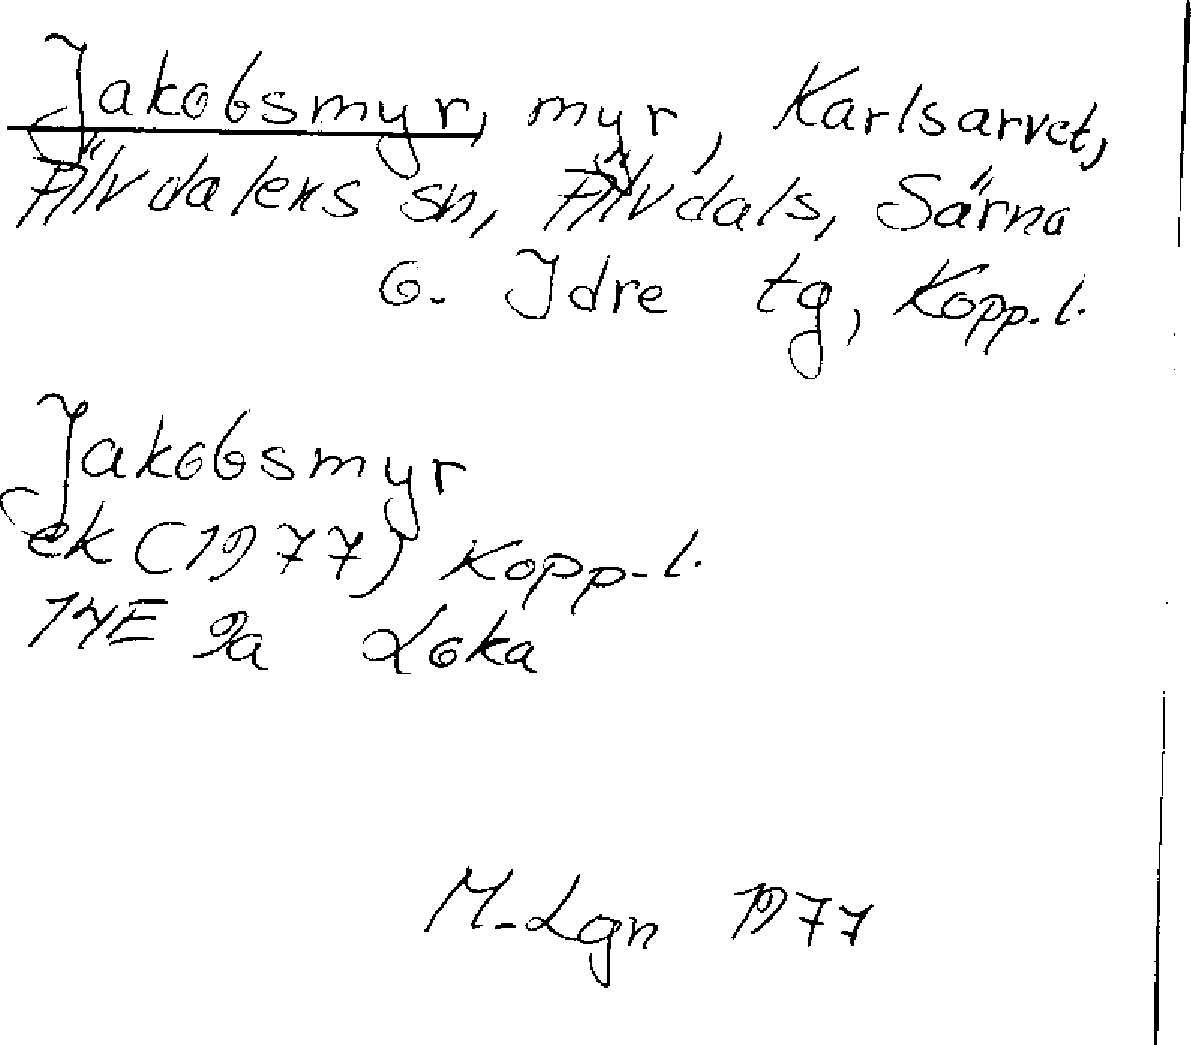 Jakobsmyr, myr, Karlsarvet,
Älvdalens sn, Älvdals, Särna
o. Idre tg, Kopp.l.
Jakobsmyr
ek (1977) Kopp-l.
14E 9a Loka
M-Lgn 1977